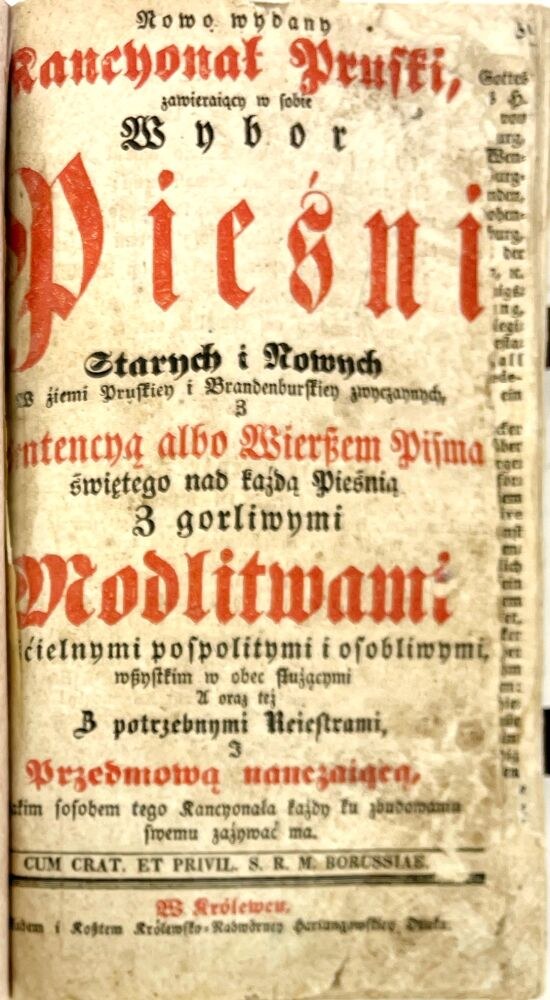 Nowo wydany
Kancyonał Pruski,
zawieraiący w sobie
Wybor
Pieśni
Starych i Nowych
W ziemi Pruskiey i Brandenburskiey zwyczaynych,
Z
ntencyą albo Wierszem Pisma
świętego nad każdą Pieśnią
Z gorliwymi
Modlitwami
ścielnymi pospolitymi i osobliwymi,
wszystkim w obec służącymi
A oraz też
Z potrzebnymi Reiestrami,
I
Przedmową nauczaiącą,
akim sosobem tego Kancyonała każdy ku zbudowaniu
swemu zażywać ma.
CUM CRAT. ET PRIVIL. S. R. M. BORUSSIAE.
W Królewcu,
i Kosztem Królewsko-Nadworney Hartungowskiey Druka.
Gottes
von
Wen-
burg,
der
ein